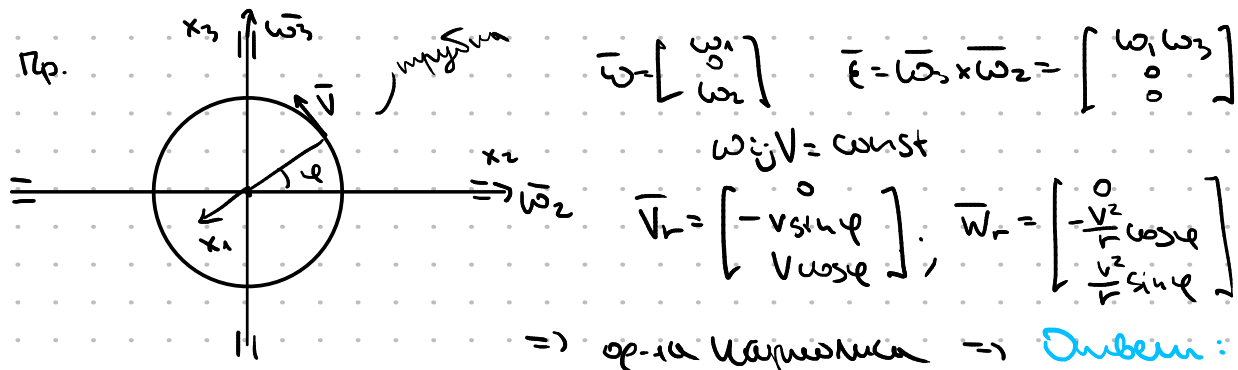 Пр.
x₃ ω̄₃
трубка
V̄
φ
x₂
ω̄₂
x₁
ω̄ = [ω₁ 0 ω₂] ε̄ = ω̄₃ × ω̄₂ = [ω₁ω₃ 0 0]
ω ij V = const
V̄r = [0 -v sin φ V cos φ]; W̄r = [0 -v²/r cos φ v²/r sin φ]
=> ф-ла Кариолиса => Ответ: